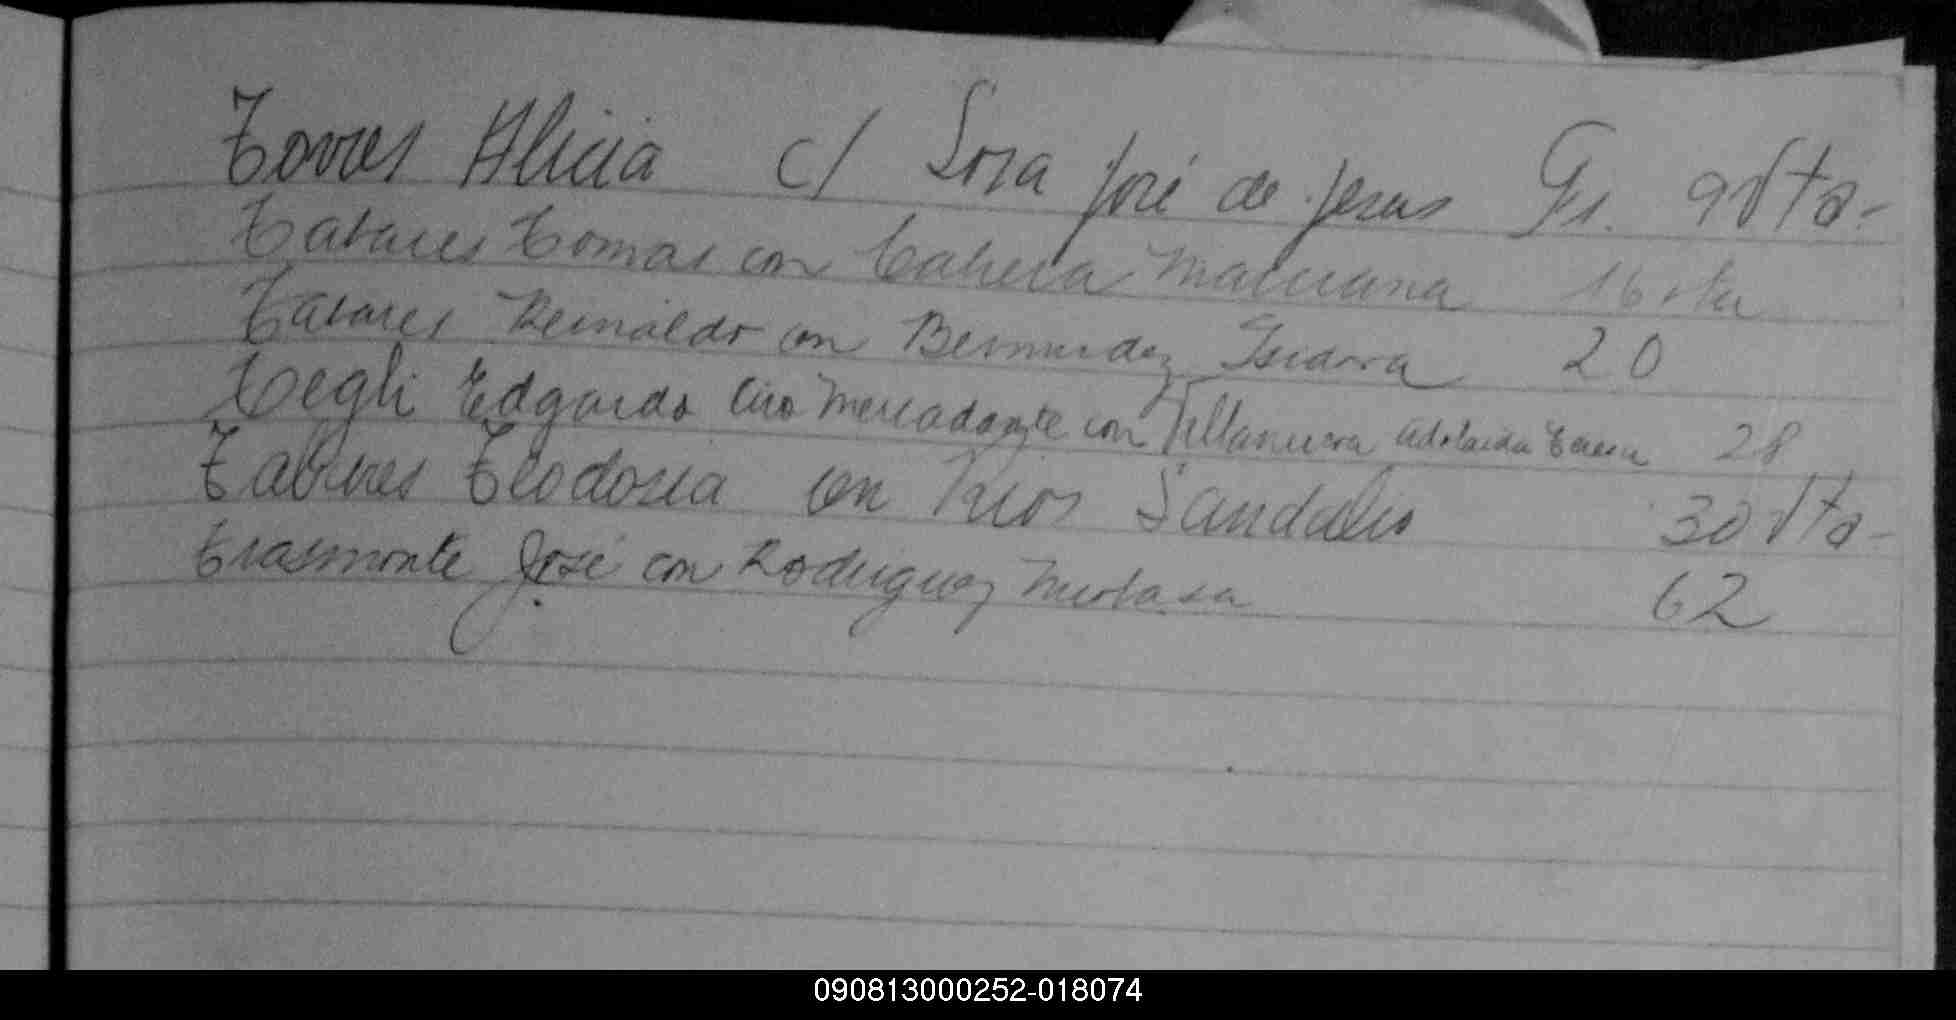 Torres Alicia c/ Sosa José de Jesus Fs. 9 Vta-
Tabares Tomas con Cabrera Maturana 16 vta
Tabares Reinaldo con Bermudez Isidora 20
Tegli Edgardo Ciro Mercadante con Villanueva Adelaida Teresa 28
Tabares Teodosia con Rios Sandalio 30 Vta-
Trasmonte José con Rodriguez Nicolasa 62
090813000252-018074